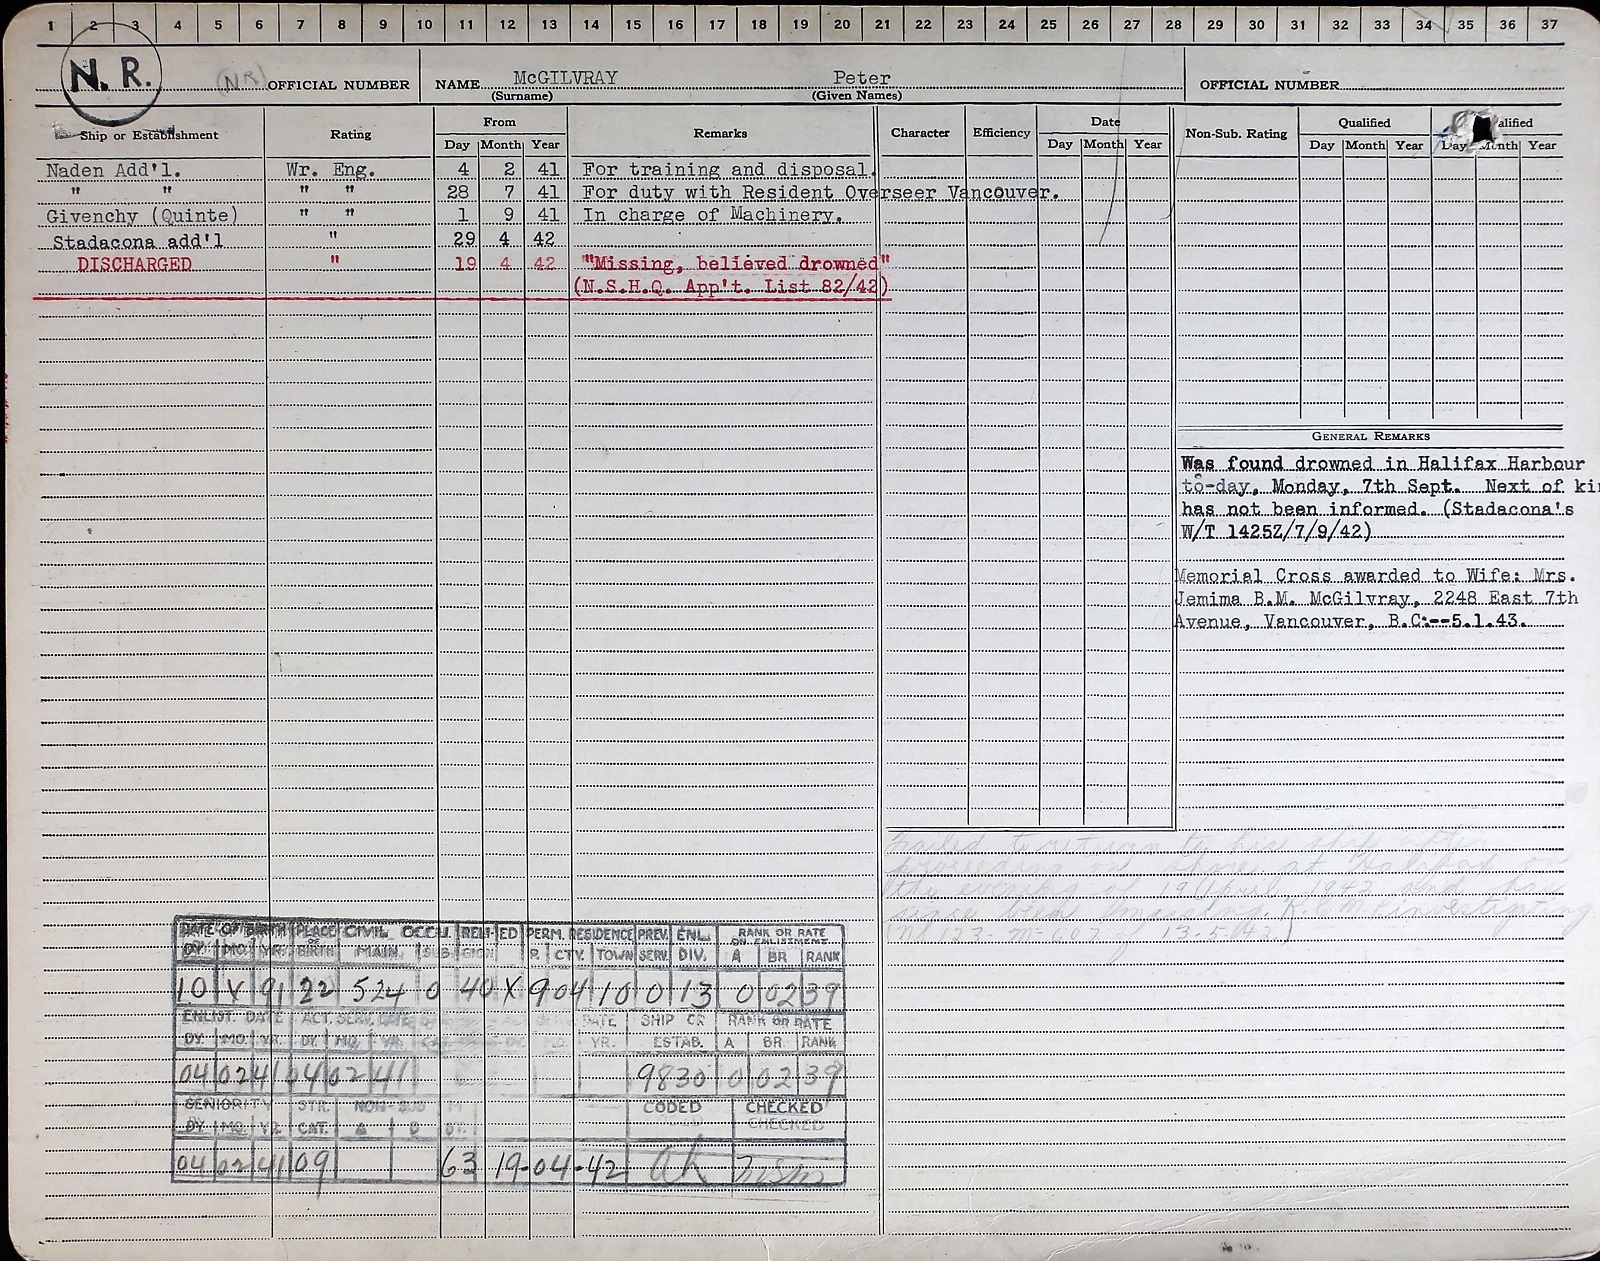 1 2 3 4 5 6 7 8 9 10 11 12 13 14 15 16 17 18 19 20 21 22 23 24 25 26 27 28 29 30 31 32 33 34 35 36 37
N. R. (NR) OFFICIAL NUMBER NAME McGILVRAY Peter OFFICIAL NUMBER
(Surname) (Given Names)
Ship or Establishment Rating From Remarks Character Efficiency Date Non-Sub. Rating Qualified alified
Day Month Year Day Month Year Day Month Year Day Month Year
Naden Add'l. Wr. Eng. 4 2 41 For training and disposal.
" " " " 28 7 41 For duty with Resident Overseer Vancouver.
Givenchy (Quinte) " " 1 9 41 In charge of Machinery.
Stadacona add'l " 29 4 42
DISCHARGED " 19 4 42 "Missing, believed drowned"
(N.S.H.Q. App't. List 82/42)
GENERAL REMARKS
Was found drowned in Halifax Harbour
to-day, Monday, 7th Sept. Next of kin
has not been informed. (Stadacona's
W/T 1425Z/7/9/42)
Memorial Cross awarded to Wife: Mrs.
Jemima B.M. McGilvray, 2248 East 7th
Avenue, Vancouver, B.C:--5.1.43.
Failed to return to his ship after
proceeding on shore at Halifax on
the evening of 19 April 1942 and has
since been missing. investigating
13-5-42)
DATE OF BIRTH PLACE OF BIRTH CIVIL OCCU. RELI-GION ED PERM. RESIDENCE PREV. SERV. ENL. DIV. RANK OR RATE ON ENLISTMENT
DY. MO. YR. MAIN. SUB. P. CTY. TOWN A BR RANK
10 V 91 22 524 0 40 X 9 04 10 0 13 0 02 39
ENLIST. DATE ACT. SERV. DATE RATE SHIP OR ESTAB. RANK OR RATE
DY. MO. YR. DY. MO. YR. YR. A BR. RANK
04 02 41 04 02 41 9830 0 02 39
SENIORITY STR. CAT. NON-SUB CODED CHECKED
DY. MO. YR. A B CHECKED
04 02 41 09 63 19-04-42